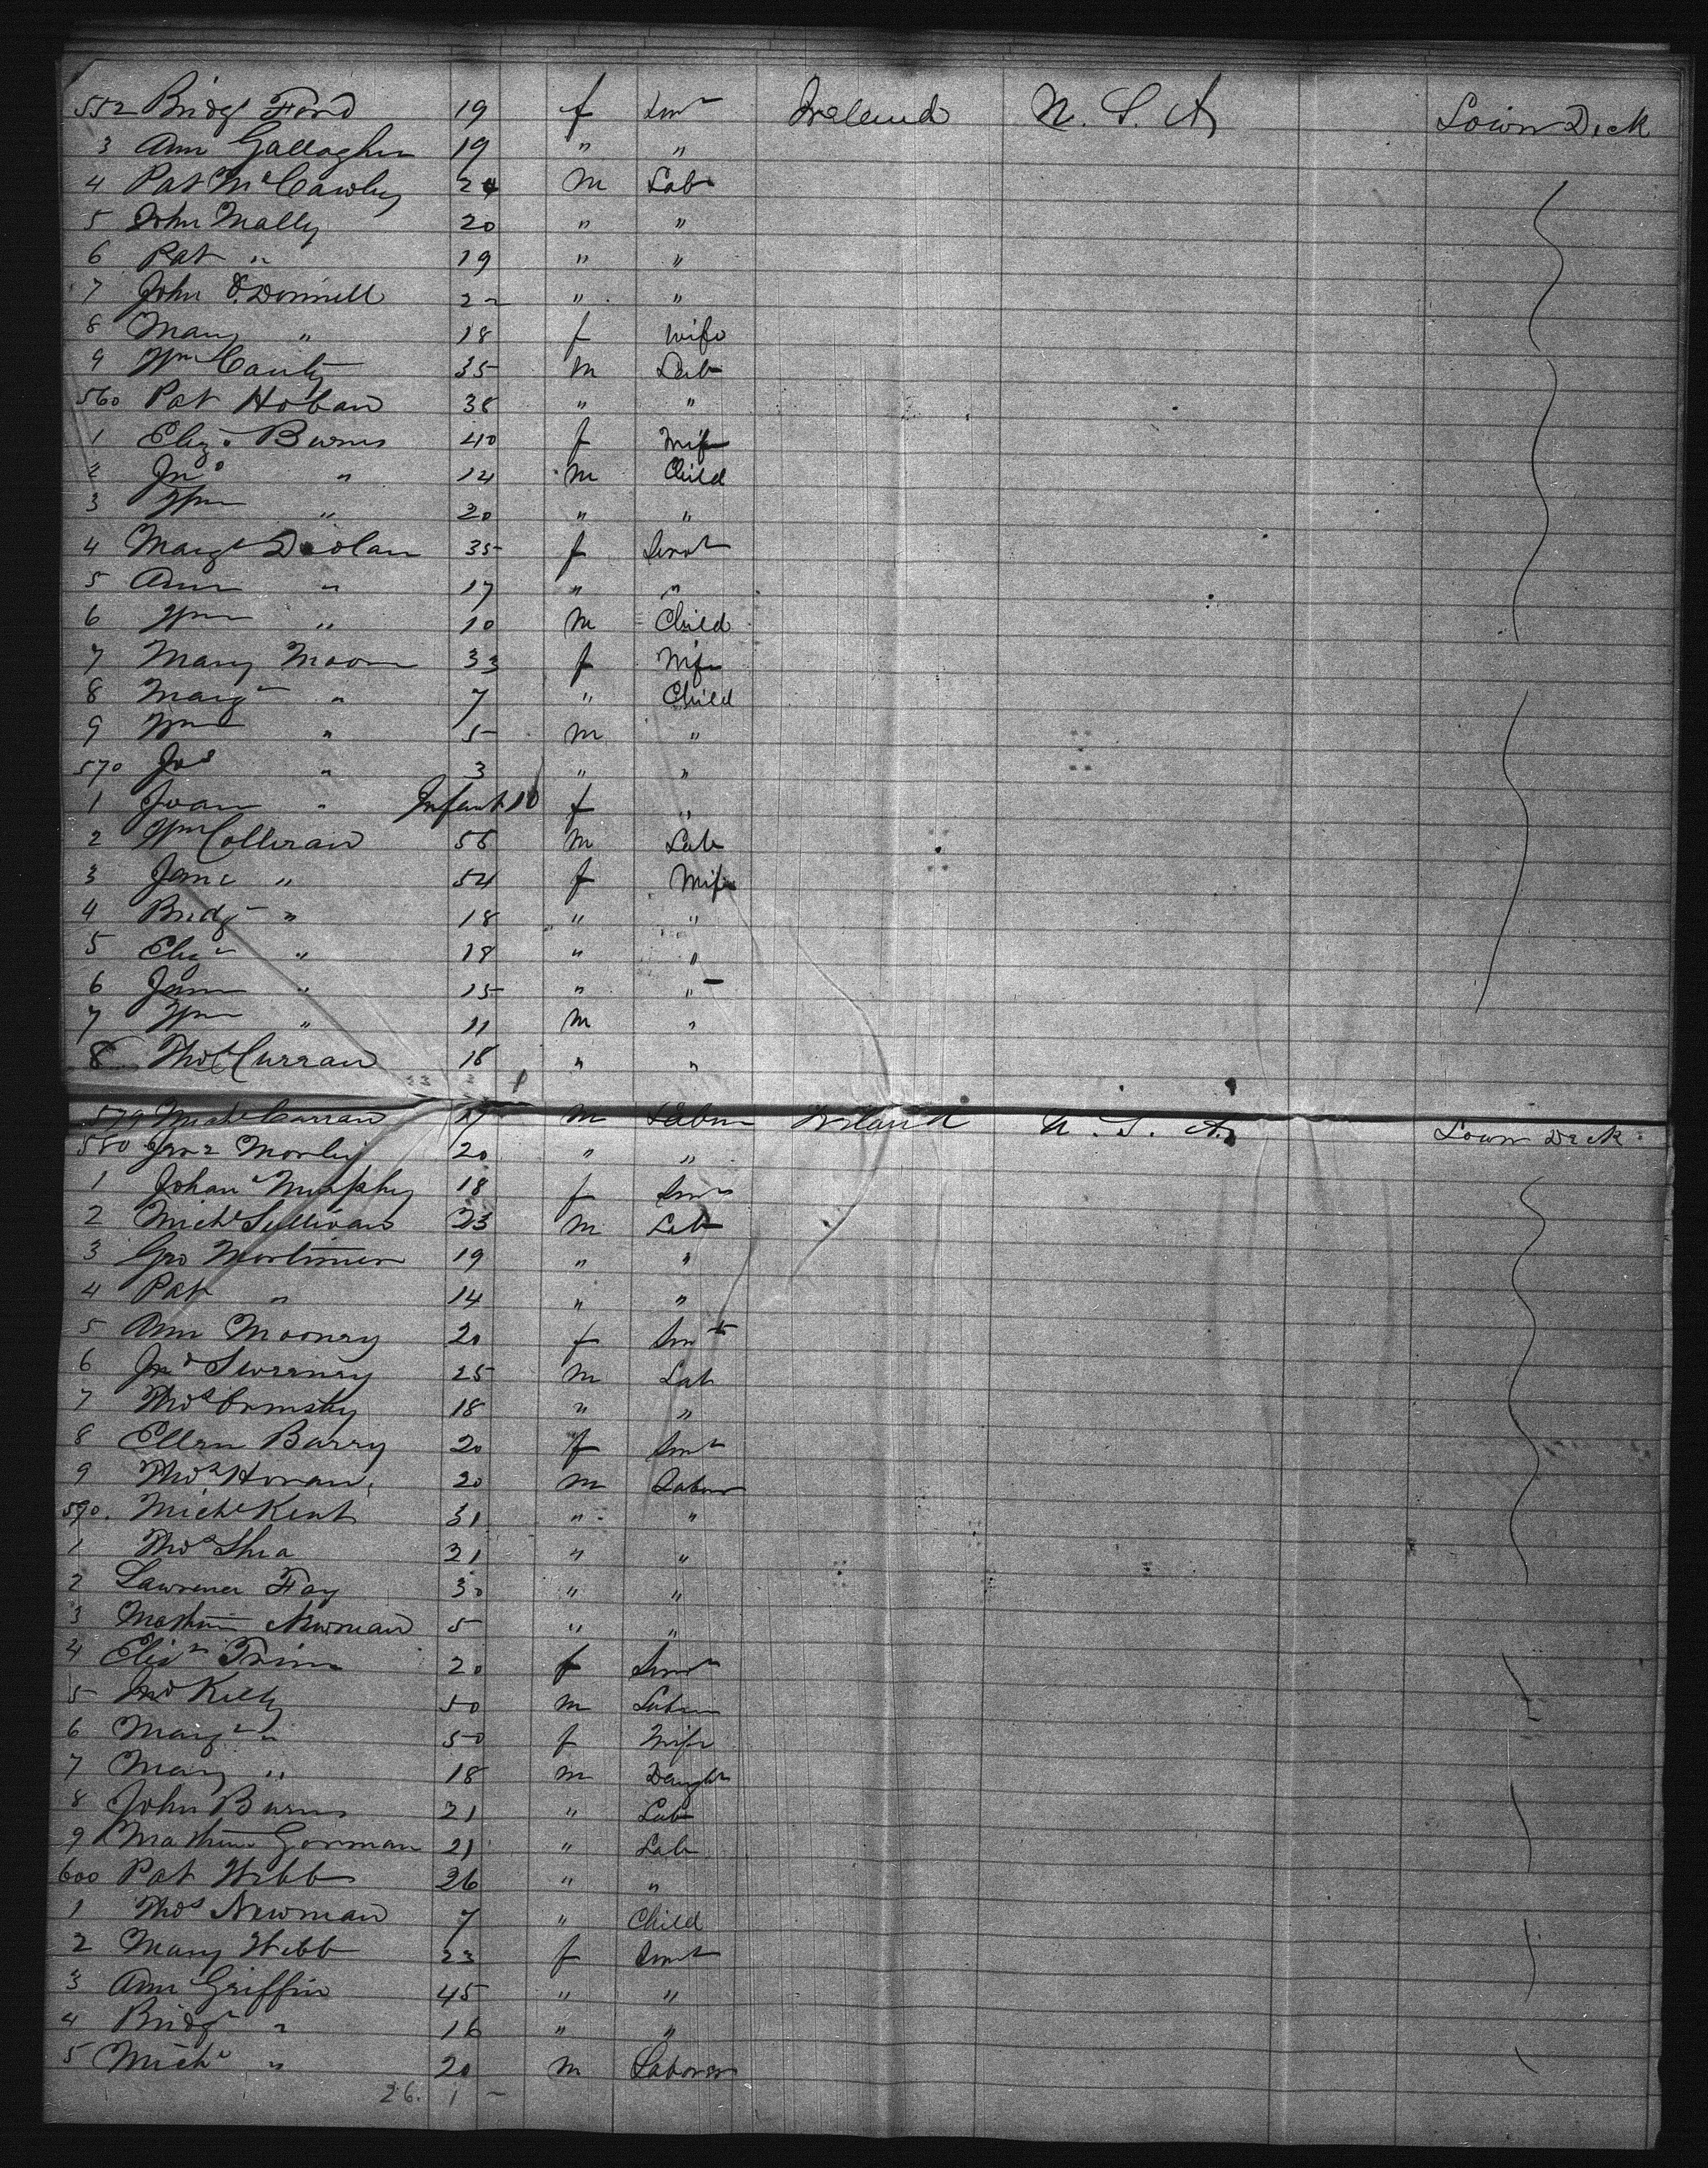 552 Bridgt Ford 19 f Servt Ireland U. S. A. Lower Deck
3 Ann Gallagher 19 " "
4 Pat McCawley 24 M Lab
5 John Mally 20 " "
6 Pat " 19 " "
7 John O'Donnell 22 " "
8 Mary " 18 f Wife
9 Wm Canty 35 M Lab
560 Pat Hoban 38 " "
1 Eliza Burns 40 f Wife
2 Jno " 14 M Child
3 Wm " 20 " "
4 Margt Doolan 35 f Servt
5 Ann " 17 " "
6 Wm " 10 M Child
7 Mary Moore 33 f Wife
8 Margt " 7 " Child
9 Wm " 5 M "
570 Jos " 3 " "
1 Joan " Infant 10 f "
2 Wm Colleran 56 M Lab
3 Jane " 54 f Wife
4 Bridgt " 18 " "
5 Eliza " 18 " "
6 Jane " 15 " "
7 Wm " 11 M "
8 Thos Curran 18 " "
33 3 1
579 Michl Curran 27 M Labor Ireland U. S. A. Lower Deck
580 Jno Morley 20 " "
1 Johana Murphy 18 f Servt
2 Michl Sullivan 23 M Lab
3 Geo Mortimer 19 " "
4 Pat " 14 " "
5 Ann Mooney 20 f Servt
6 Jno Sweeney 25 M Lab
7 Thos Ormsby 18 " "
8 Ellen Barry 20 f Servt
9 Thos Horan 20 M Labour
590. Michl Kent 31 " "
1 Thos Shea 21 " "
2 Lawrence Fay 30 " "
3 Matthew Newman 5 " "
4 Eliza Trim 20 f Servt
5 Jno Kelly 50 M Labour
6 Margt " 50 f Wife
7 Mary " 18 M Daughtr
8 John Burns 21 " Lab
9 Matthew Gorman 21 " Lab
600 Pat Webb 26 " "
1 Thos Newman 7 " Child
2 Mary Webb 23 f Servt
3 Ann Griffin 45 " "
4 Bridgt " 16 " "
5 Michl " 20 M Laborer
26. 1 -